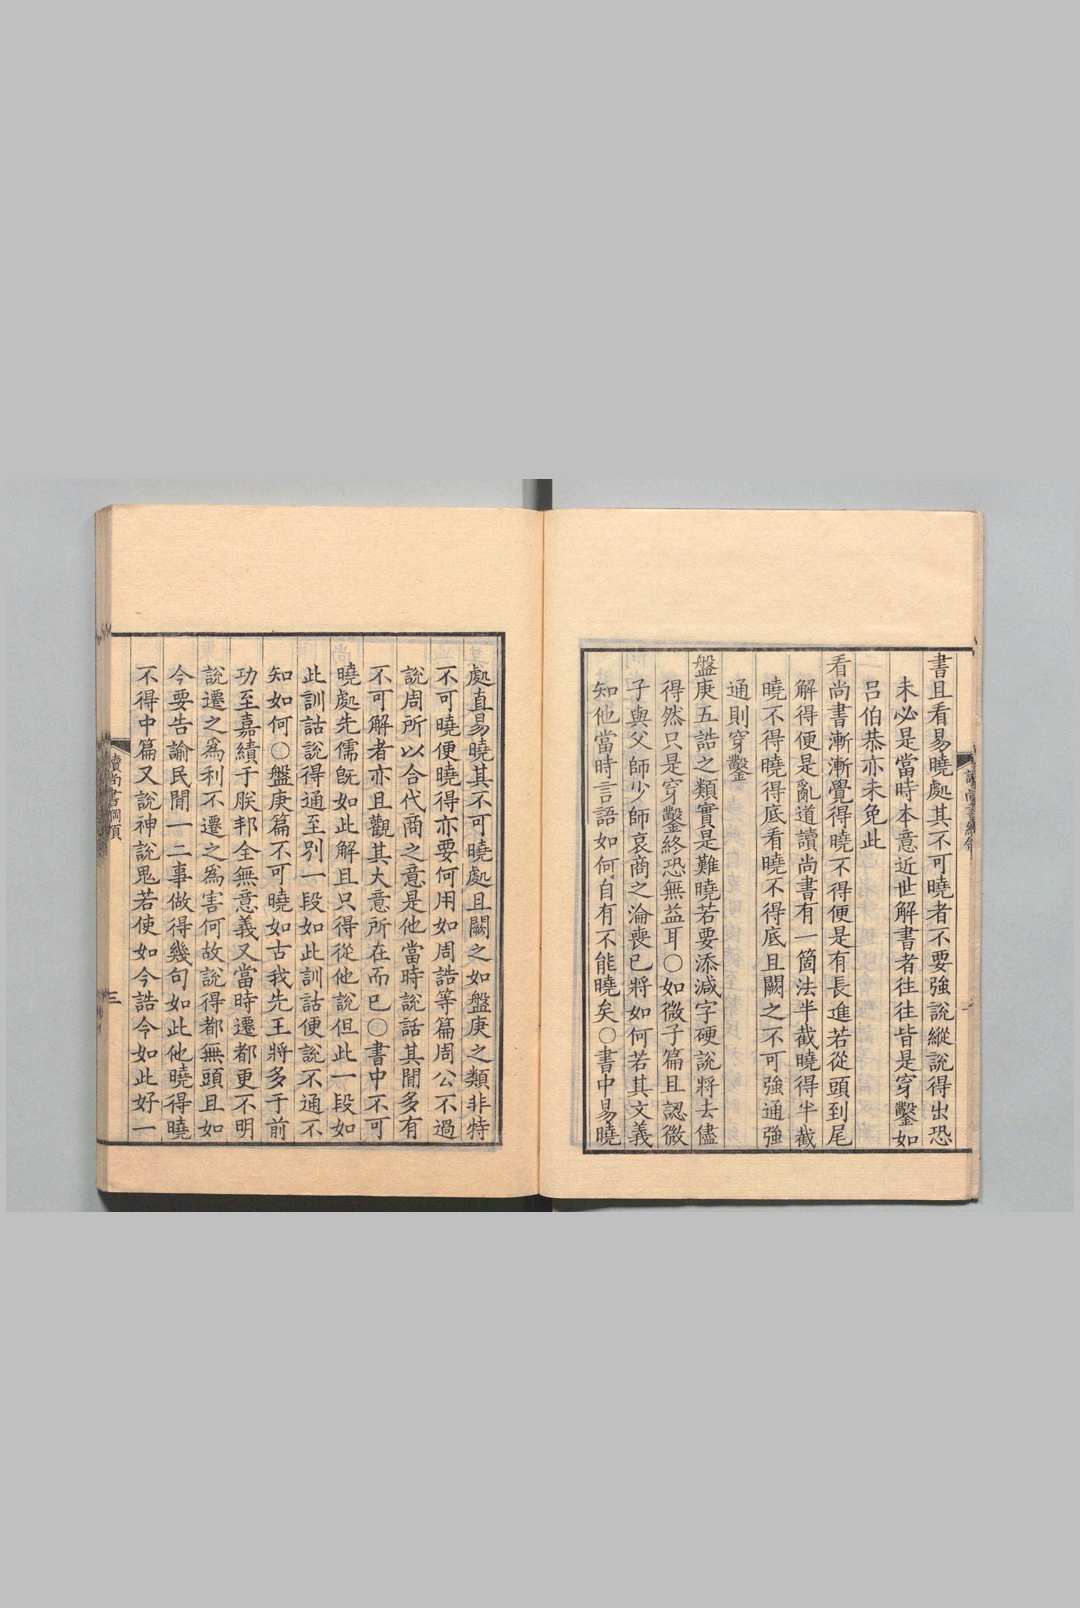 書且看易曉處其不可曉者不要強說縱說得出恐
未必是當時本意近世解書者往往皆是穿鑿如
呂伯恭亦未免此
看尚書漸漸覺得曉不得便是有長進若從頭到尾
解得便是亂道讀尚書有一箇法半截曉得半截
曉不得曉得底看曉不得底且闕之不可強通強
通則穿鑿
盤庚五誥之類實是難曉若要添減字硬說將去儘
得然只是穿鑿終恐無益耳○如微子篇且認微
子與父師少師哀商之淪喪已將如何若其文義
知他當時言語如何自有不能曉矣○書中易曉
處直易曉其不可曉處且闕之如盤庚之類非特
不可曉便曉得亦要何用如周誥等篇周公不過
說周所以合代商之意是他當時說話其閒多有
不可解者亦且觀其大意所在而已○書中不可
曉處先儒旣如此解且只得從他說但此一段如
此訓詁說得通至别一段如此訓詁便說不通不
知如何○盤庚篇不可曉如古我先王將多于前
功至嘉績于朕邦全無意義又當時遷都更不明
說遷之爲利不遷之爲害何故說得都無頭且如
今要告諭民閒一二事做得幾句如此他曉得曉
不得中篇又說神說鬼若使如今誥令如此好一
讀尚書綱領
三